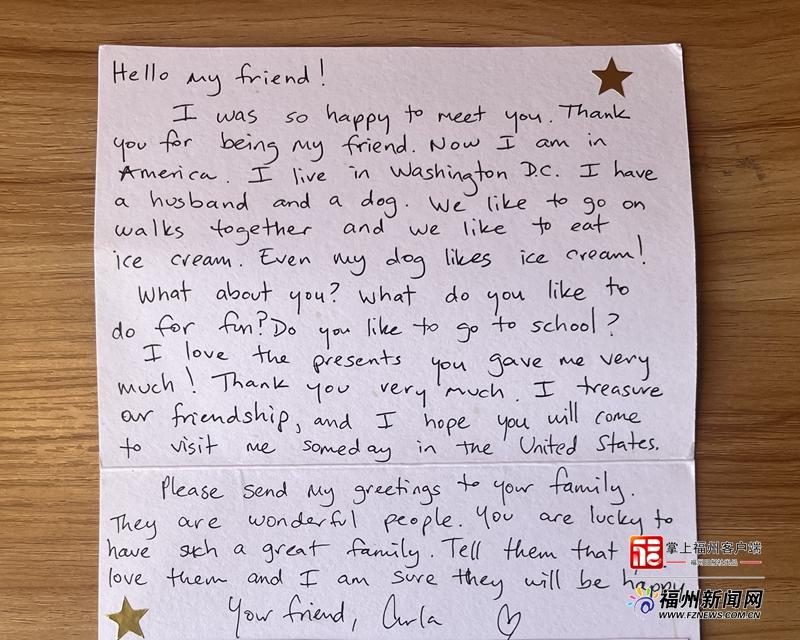 Hello my friend!
I was so happy to meet you. Thank
you for being my friend. Now I am in
America. I live in Washington D.C. I have
a husband and a dog. We like to go on
walks together and we like to eat
ice cream. Even my dog likes ice cream!
What about you? What do you like to
do for fun? Do you like to go to school?
I love the presents you gave me very
much! Thank you very much. I treasure
our friendship, and I hope you will come
to visit me someday in the United States.
Please send my greetings to your family.
They are wonderful people. You are lucky to
have such a great family. Tell them that
love them and I am sure they will be happy
Your friend, Carla
掌上福州客户端
福州新闻网
WWW.FZNEWS.COM.CN